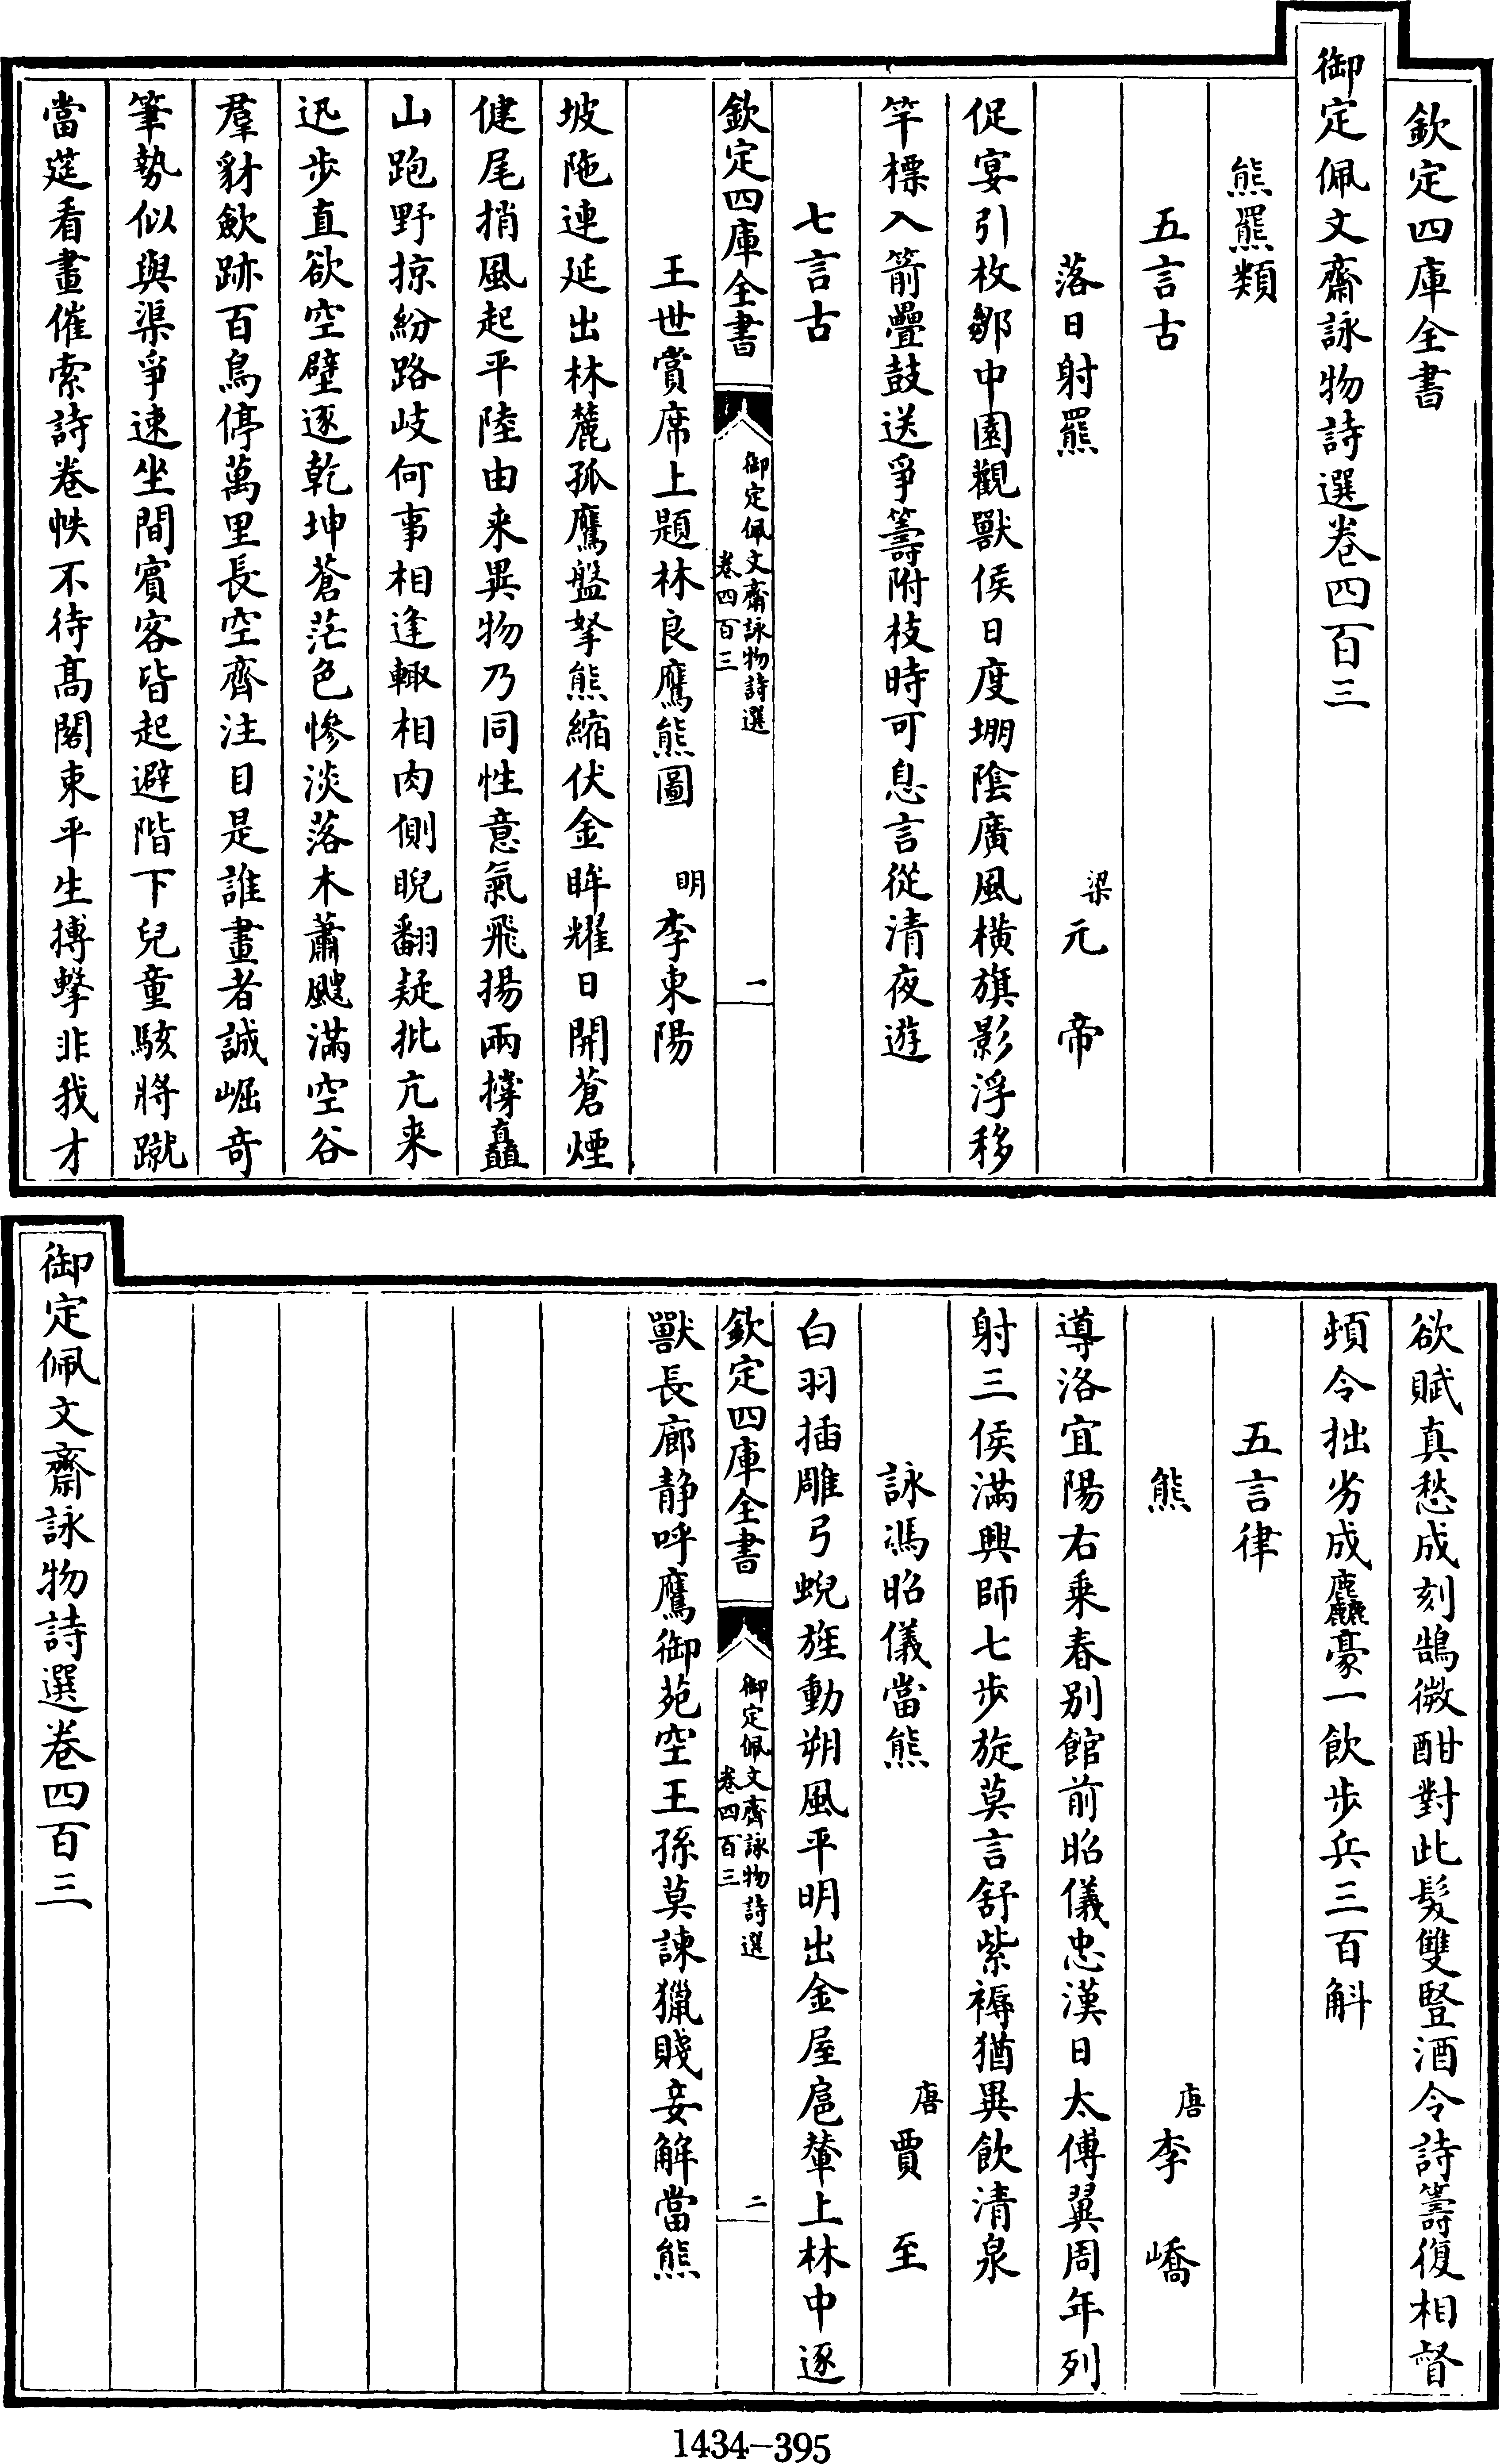 欽定四庫全書
御定佩文齋詠物詩選卷四百三
熊羆類
五言古
落日射羆 梁 元帝
促宴引枚鄒中園觀獸侯日度堋陰廣風橫旗影浮移
竿標入箭疊鼓送爭籌附枝時可息言從清夜遊
七言古
欽定四庫全書 御定佩文齋詠物詩選 卷四百三 一
王世賞席上題林良鷹熊圖 明 李東陽
坡陁連延出林麓孤鷹盤拏熊縮伏金眸耀日開蒼煙
健尾捎風起平陸由来異物乃同性意氣飛揚兩撑矗
山跑野掠紛路岐何事相逢輙相肉側睨翻疑批亢来
迅步直欲空壁逐乾坤蒼茫色慘淡落木蕭颼滿空谷
羣豺歛跡百鳥停萬里長空齊注目是誰畫者誠崛奇
筆勢似與渠爭速坐間賓客皆起避階下兒童駭將蹴
當筵看畫催索詩卷帙不待髙閣束平生搏擊非我才
欲賦真愁成刻鵠微酣對此髮雙豎酒令詩籌復相督
頻令拙劣成麤豪一飲步兵三百斛
五言律
熊 唐 李嶠
導洛宜陽右乗春别館前昭儀忠漢日太傅翼周年列
射三侯滿興師七步旋莫言舒紫褥猶異飲清泉
詠馮昭儀當熊 唐 賈至
白羽插雕弓蜺旌動朔風平明出金屋扈輦上林中逐
欽定四庫全書 御定佩文齋詠物詩選 卷四百三 二
獸長廊静呼鷹御苑空王孫莫諫獵賤妾解當熊
御定佩文齋詠物詩選卷四百三
1434-395